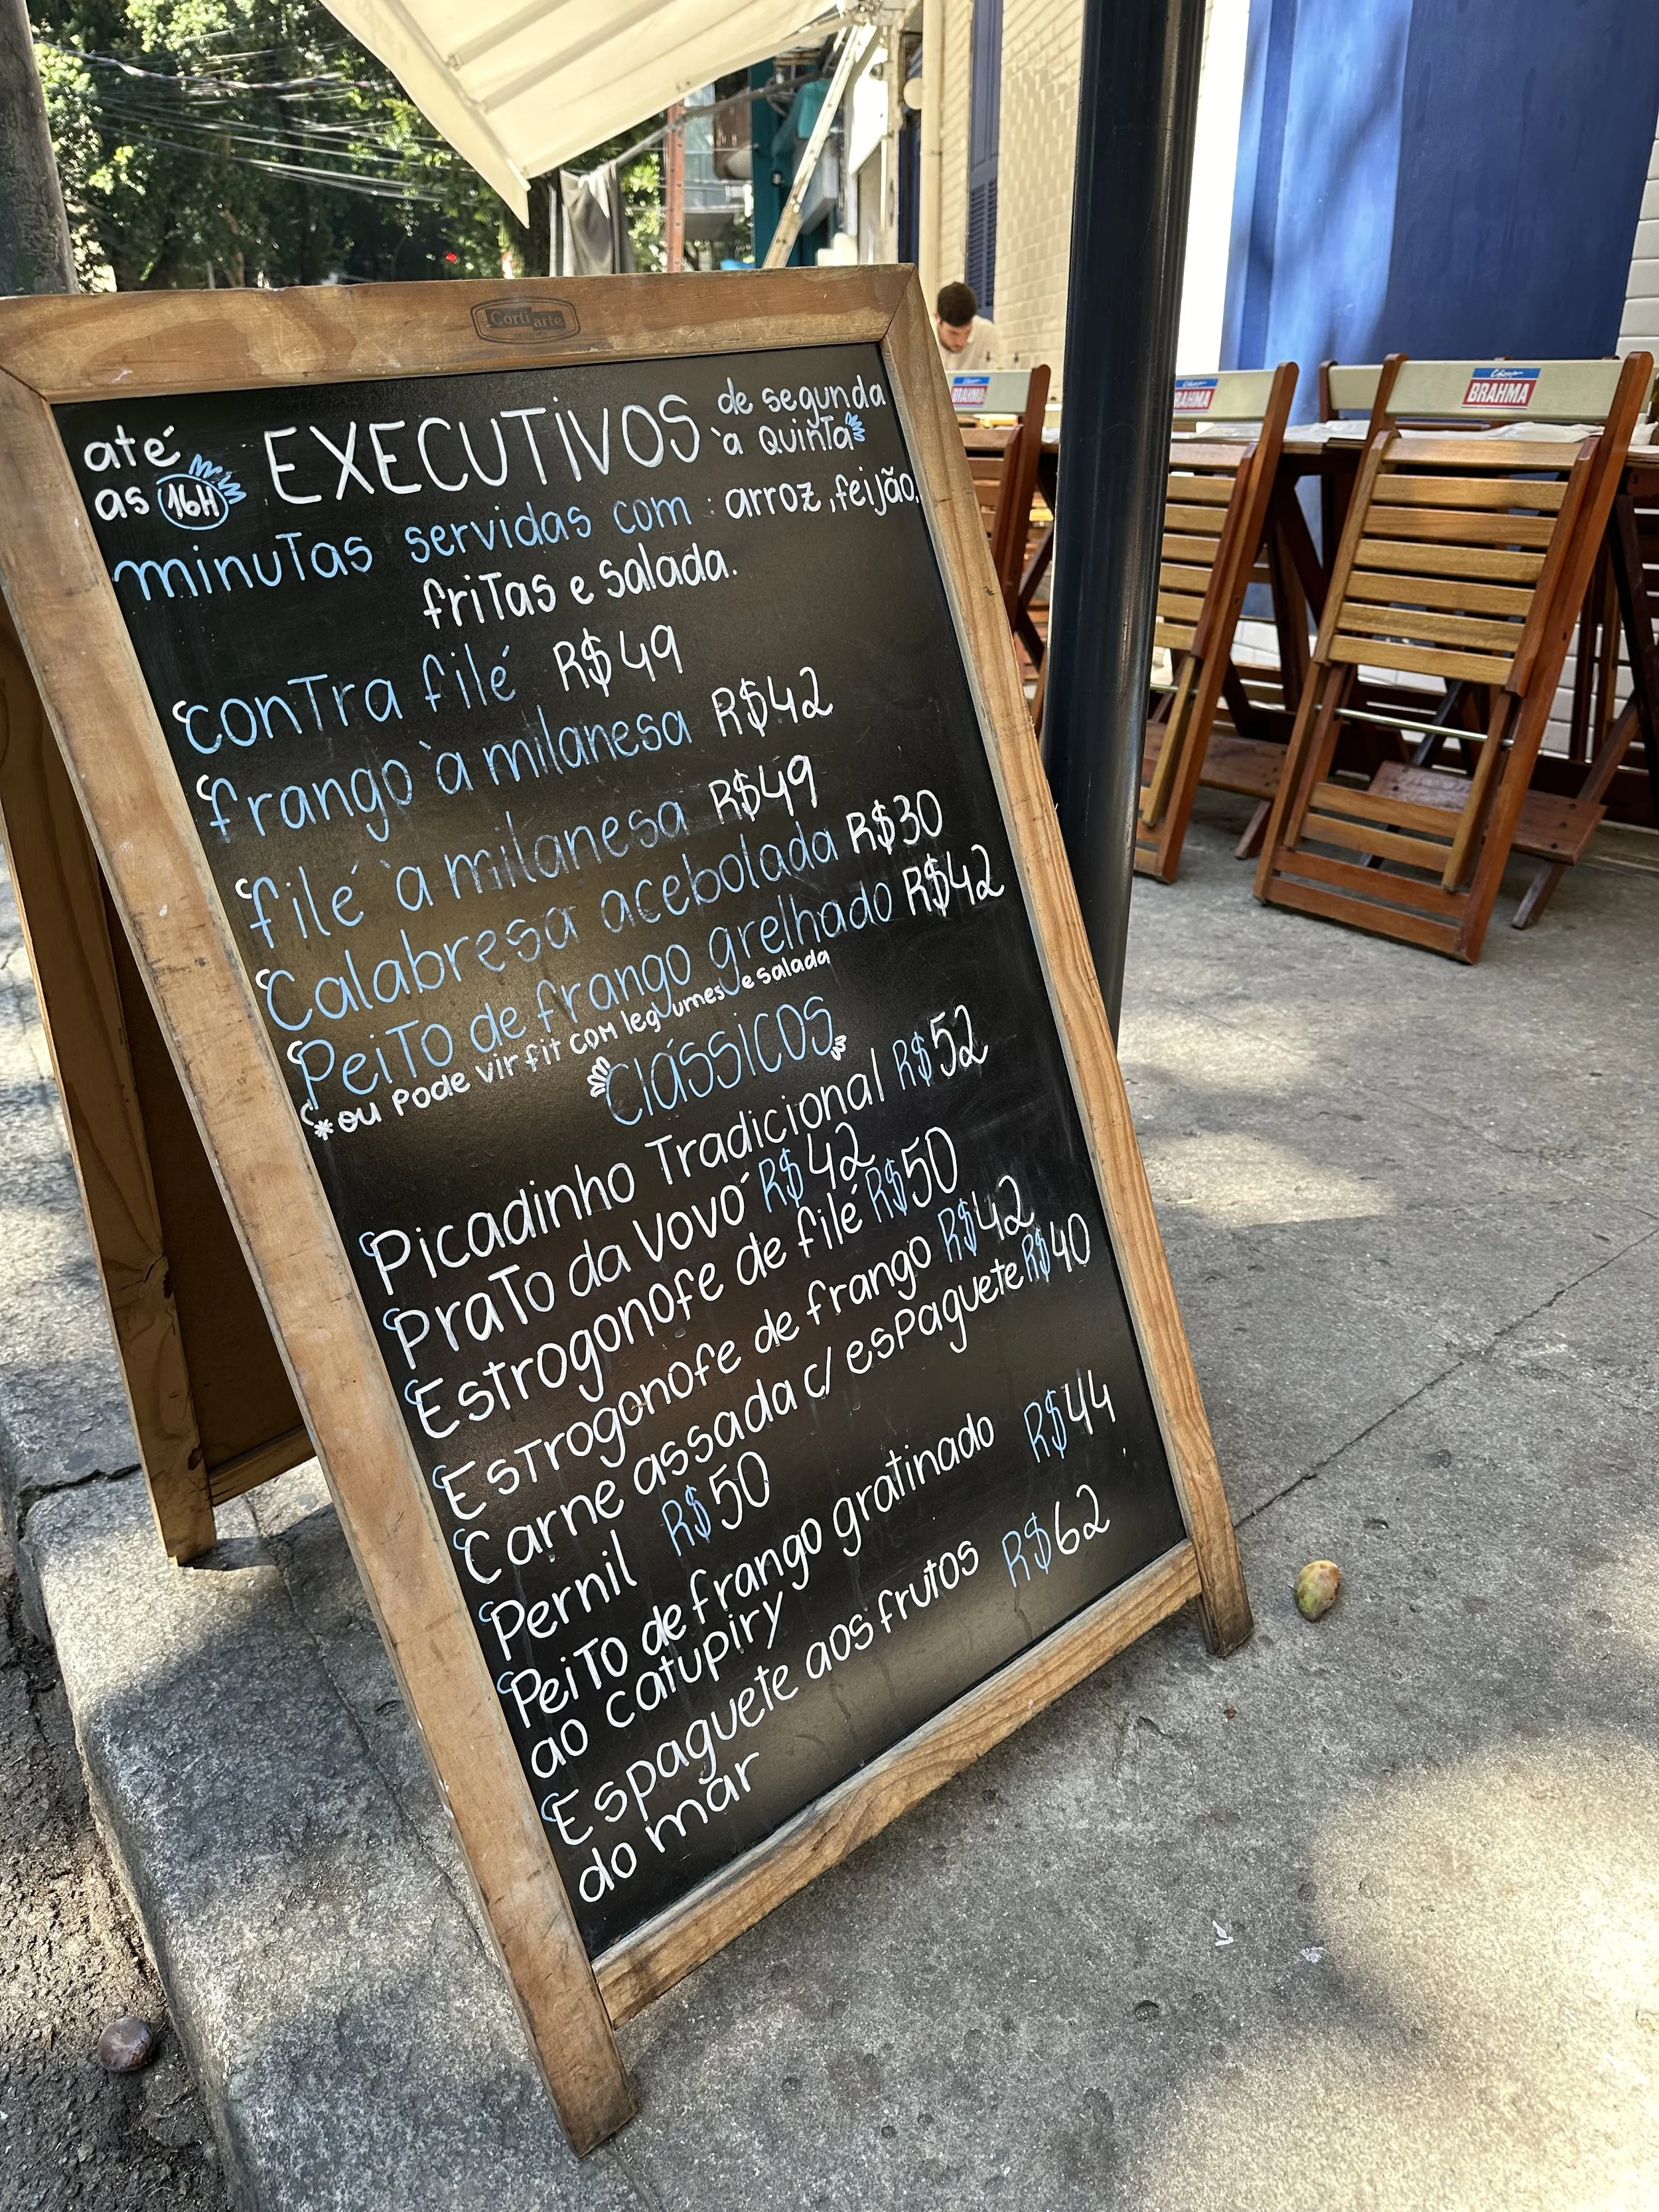 Cortiarte
até
as 16H
EXECUTIVOS
de segunda
à QUINTA
minutas servidas com : arroz, feijão,
fritas e salada.
contra filé R$49
frango à milanesa R$42
filé à milanesa R$49
Calabresa acebolada R$30
Peito de frango grelhado R$42
*ou Pode vir fit com legumes e salada
Clássicos
Picadinho Tradicional R$52
Prato da vovó R$42
Estrogonofe de filé R$50
Estrogonofe de frango R$42
Carne assada c/ espaguete R$40
Pernil R$50
Peito de frango gratinado R$44
ao catupiry
Espaguete aos frutos R$62
do mar
BRAHMA
BRAHMA
Chopp
BRAHMA